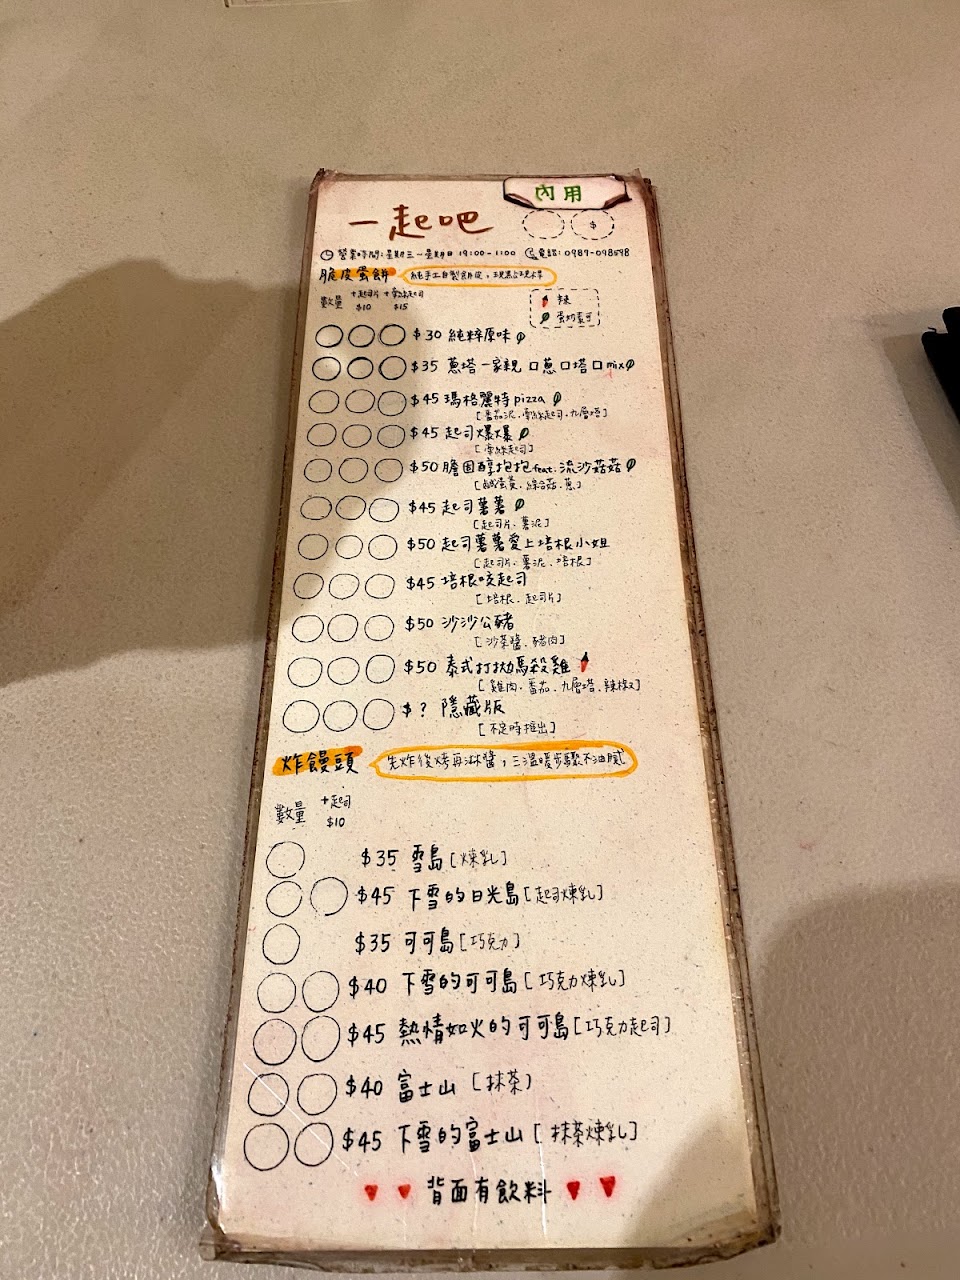 內用
一起吧
$
營業時間:星期三~星期日 19:00-1:00 電話:0989-098598
脆皮蛋餅 純手工自製餅皮,現點現
數量 +起司片 $10 +牽絲起司 $15
辣
蛋奶素可
$30 純粹原味
$35 蔥塔一家親 口蔥口塔口mix
$45 瑪格麗特pizza
[番茄泥.牽絲起司.九層塔]
$45 起司爆爆
[牽絲起司]
$50 膽固醇抱抱feat.流沙菇菇
[鹹蛋黃.綜合菇.蔥]
$45 起司薯薯
[起司片.薯泥]
$50 起司薯薯愛上培根小姐
[起司片.薯泥.培根]
$45 培根咬起司
[培根.起司片]
$50 沙沙公豬
[沙茶醬.豬肉]
$50 泰式打拋馬殺雞
[雞肉.番茄.九層塔.辣椒]
$? 隱藏版
[不定時推出]
炸饅頭 先炸後烤再淋醬,三溫暖步驟不油膩
數量 +起司 $10
$35 雪島[煉乳]
$45 下雪的日光島[起司煉乳]
$35 可可島[巧克力]
$40 下雪的可可島[巧克力煉乳]
$45 熱情如火的可可島[巧克力起司]
$40 富士山[抹茶]
$45 下雪的富士山[抹茶煉乳]
背面有飲料